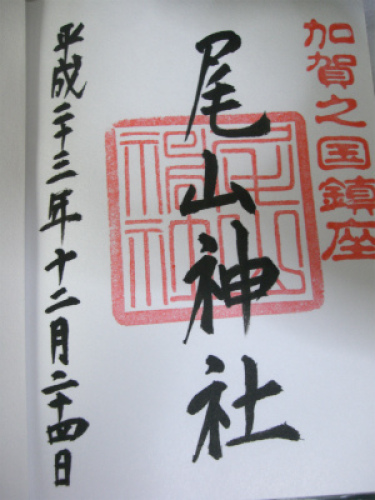 加賀之国鎮座
尾山神社
尾山神社
平成二十三年十二月二十四日